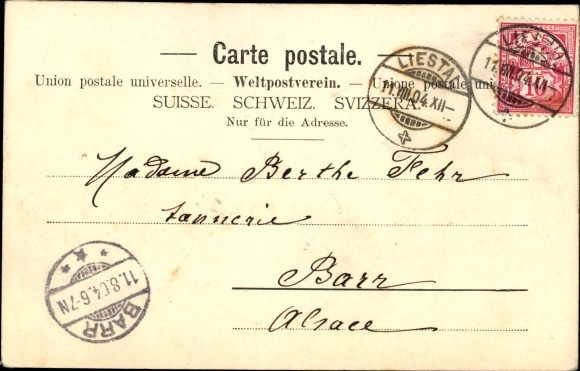 Carte postale.
Union postale universelle. — Weltpostverein. — Unione postale uni
SUISSE. SCHWEIZ. SVIZZERA.
Nur für die Adresse.
LIESTAL
11.VIII.04.XII—
LIESTAL
11.VIII.04.XII—
10
Madame Berthe Fehr
tannerie
Barr
Alsace
11.8.04.6-7N
BARR